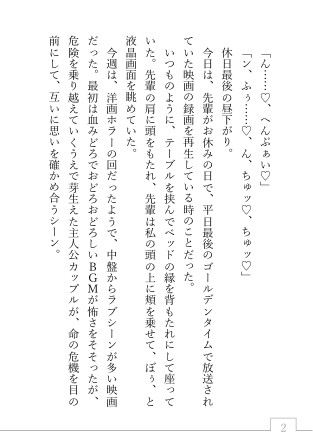 「ん……♡、へんぷぁい♡」
「ン、ふぅ……♡、ん、ちゅッ♡、ちゅッ♡」
休日最後の昼下がり。
今日は、先輩がお休みの日で、平日最後のゴールデンタイムで放送され
ていた映画の録画を再生している時のことだった。
いつものように、テーブルを挟んでベッドの縁を背もたれにして座って
いた。先輩の肩に頭をもたれ、先輩は私の頭の上に頬を乗せて、ぼぅ、と
液晶画面を眺めていた。
今週は、洋画ホラーの回だったようで、中盤からラブシーンが多い映画
だった。最初は血みどろでおどろおどろしいＢＧＭが怖さをそそったが、
危険を乗り越えていくうえで芽生えた主人公カップルが、命の危機を目の
前にして、互いに思いを確かめ合うシーン。
2